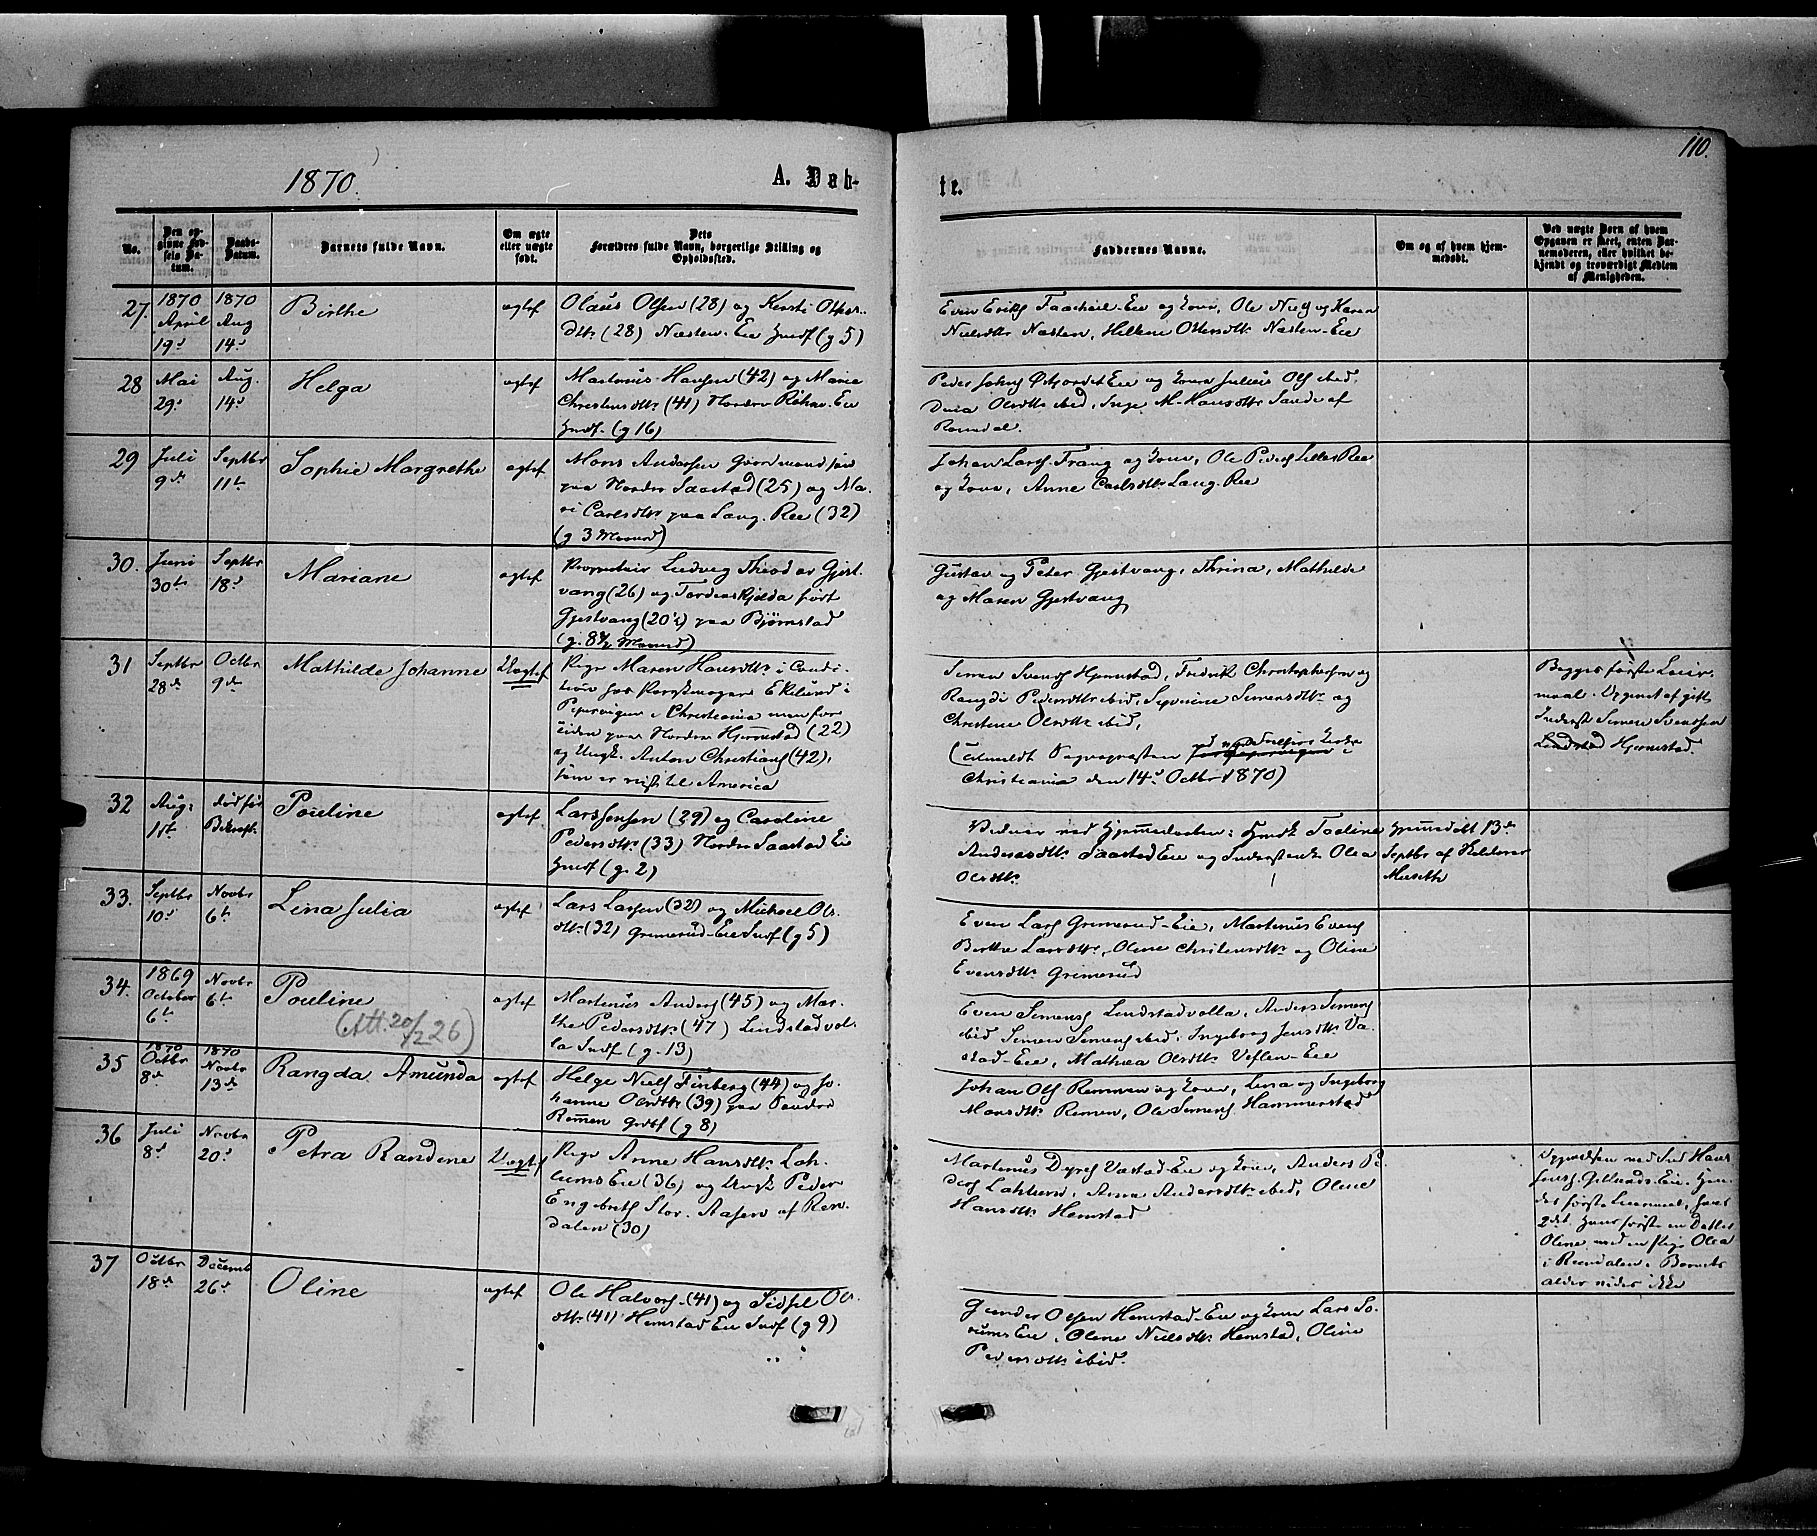 110.
1870.
A. Døb-
te.
No.
Den op-
givne Fød-
sels Da-
tum.
Daabs-
Datum.
Barnets fulde Navn.
Om ægte
eller uægte
født.
Dets
Forældres fulde Navn, borgerlige Stilling og
Opholdssted.
Faddernes Navne.
Om og af hvem hjem-
medøbt.
Ved uægte Børn af hvem
Opgaven er skeet, enten Bar-
nemoderen, eller hvilket be-
kjendt og troværdigt Medlem
af Menigheden.
27.
1870
April
19d
1870
Aug
14d
Birthe
ægtef
Olaus Olsen (28) og Kersti Otters-
dtr (28) Næsten-Eie Indf (g 5)
Even Eriks Taasheil-Eie og Kone, Ole Niels og Karen
Nielsdtr Næsten, Hellene Ottersdtr Næsten-Eie
28
Mai
29d
Aug.
14d
Helga
ægtef
Martinus Hansen (42) og Maria
Christensdtr (41) Nordre Eie
Indf. (g 16)
Peder Johns Eie og Kone Julius Ols ibid.
Olsdtr ibid, Inge M. Hansdtr Sande af
Romedal.
29
Juli
9de
Septbr
11te
Sophie Margrethe
ægtef
Mons Andersen Gaardmandssøn
paa Nordre Saastad (25) og Ma-
ri Carlsdtr paa Lang-Ree (32)
(g 3 Maaned)
Johan Lars Frang og Kone, Ole Peders Lille Ree
og Kone, Anne Carlsdtr Lang-Ree
30.
Juni
30te
Septbr
18d
Mariane
ægtef
Proprietair Ludvig Theodor Gjest-
vang (26) og Tordenskjolda født
Gjestvang (20½) paa Bjørnstad
(g. 8½ Maaned)
Gustav og Peter Gjestvang, Thrina, Mathilde
og Maren Gjestvang
31
Septbr
28de
Octbr
9de
Mathilde Johanne
Uægtef
Pige Maren Hansdtr i Condi-
tion hos Ekelund i
Pipervigen i Christiania men for
tiden paa Nordre Hjemstad (22)
og Ungk. Anton Christians (42),
som er reist til America
Simen Svends Hjemstad, Fredrik Christophersen og
Rangdi Pedersdtr ibid, Severine Simensdtr og
Christine Olsdtr ibid,
(Tilmeldt Sognepræsten ved Kirke i
Christiania den 14d Octbr 1870)
Begges første Leier-
maal. Opgivet af gift
Inderst Simen Svendsen
Lindstad Hjemstad.
32
Aug:
11te
død før
Bekræft.
Pouline
ægtef
Lars Jensen (29) og Caroline
Pedersdtr (33) Nordre Saastad Eie
Indf (g. 2)
Vidner ved Hjemmedaaben: Taaline
Andersdtr Saastad Eie og Inderstenke Olea
Olsdtr
Hjemmedøbt 13de
Septbr af
33.
Septbr
10d
Novbr
6te
Lina Julia
ægtef
Lars Larsen (32) og Ols-
dtr (32) Grimerud-Eie Indf (g 5)
Even Lars Grimerud-Eie, Martinus Evens
Berthe Larsdtr, Oline Christensdtr og Oline
Evensdtr Grimerud
34.
1869
October
6te
Novbr
6te
Pouline
(Att. 20/2 26)
ægtef
Martinus Anders (45) og Mar-
the Pedersdtr (47) Lindstadvol-
la Indf (g. 13)
Even Simens Lindstadvolla, Anders Simens
ibid Simen Simens ibid, Ingeborg Jensdtr Va-
stad-Eie, Mathea Olsdtr Veflen-Eie
35
1870
Octbr
8de
1870
Novbr
13de
Rangda Amunda
ægtef
Helge Niels Finberg (44) og Jo-
hanne Olsdtr (39) paa Søndre
Rømen Grdbf (g 8)
Johan Ols Remmen og Kone, Lina og Ingeborg
Monsdtr Rømen, Ole Simens Hammerstad
36
Juli
8d
Novbr
20d
Petra Randine
Uægtef
Pige Anne Hansdtr Loh-
lums Eie (36) og Ungk Peder
Engebrets Stor-Aasen af Ren-
dalen (30)
Martinus Dyres Vastad-Eie og Kone, Anders Pe-
ders Lohlum, Anne Andersdtr ibid, Oline
Hansdtr Hemstad
Opgivelsen ved Ind Hans
Jens Eie. Hen-
des første Leiermaal, hans
2det. Hans første en Datter
Oline med en Pige Olea
i Rendalen. Barnets
alder vides ikke
37
Octbr
18de
Decemb
26d
Oline
ægtef
Ole Halvors (41) og Sidsel Ols-
dtr (41) Hemstad Eie Indf (g 9)
Gunder Olsen Hemstad-Eie og Kone Lars So-
rums Eie, Oline Nielsdtr Hemstad, Oline
Pedersdtr ibid.